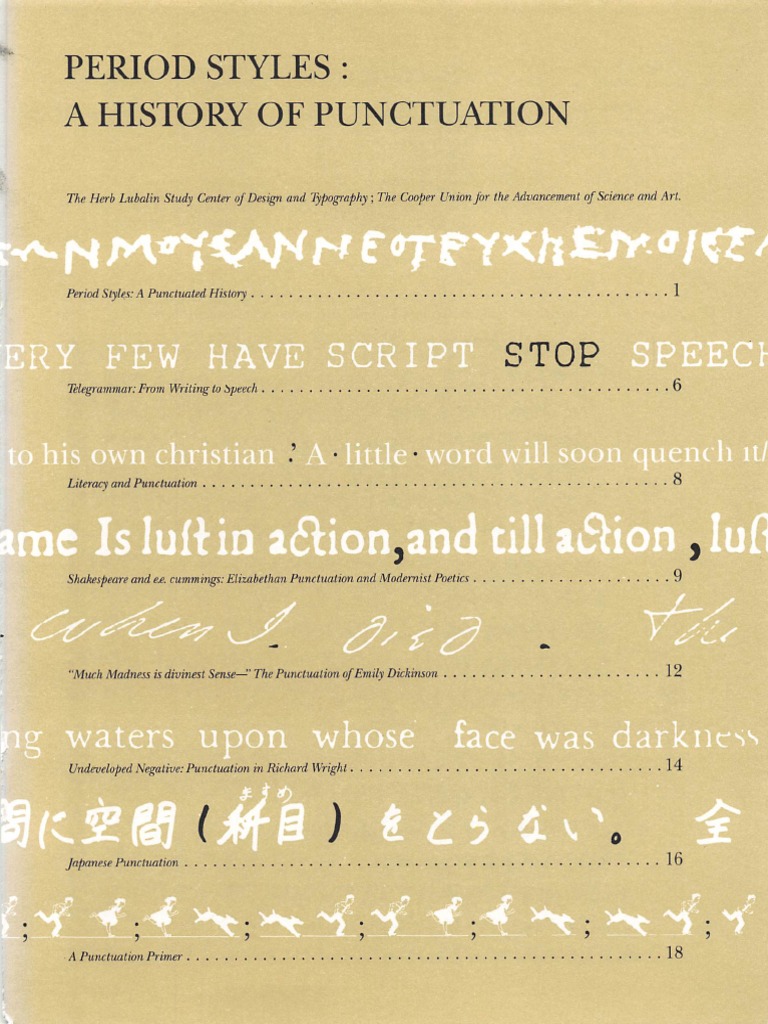 PERIOD STYLES :
A HISTORY OF PUNCTUATION
The Herb Lubalin Study Center of Design and Typography ; The Cooper Union for the Advancement of Science and Art.
Period Styles: A Punctuated History . . . . . . . . . . . . . . . . . . . . 1
ERY FEW HAVE SCRIPT STOP SPEECH
Telegrammar: From Writing to Speech . . . . . . . . . . . . . . . . . . . . 6
to his own christian .’ A · little · word will soon quench it/
Literacy and Punctuation . . . . . . . . . . . . . . . . . . . . 8
ame Is luſt in action, and till action , luſ
Shakespeare and e.e. cummings: Elizabethan Punctuation and Modernist Poetics . . . . . . . . . . . . . . . . . . . . 9
When I . died . the
“Much Madness is divinest Sense—” The Punctuation of Emily Dickinson . . . . . . . . . . . . . . . . . . . . 12
ng waters upon whose face was darkness
Undeveloped Negative: Punctuation in Richard Wright . . . . . . . . . . . . . . . . . . . . 14
ますめ
間に空間 ( 目 ) をとらない。 全
Japanese Punctuation . . . . . . . . . . . . . . . . . . . . 16
; ; ; ; ; ; ;
A Punctuation Primer . . . . . . . . . . . . . . . . . . . . 18